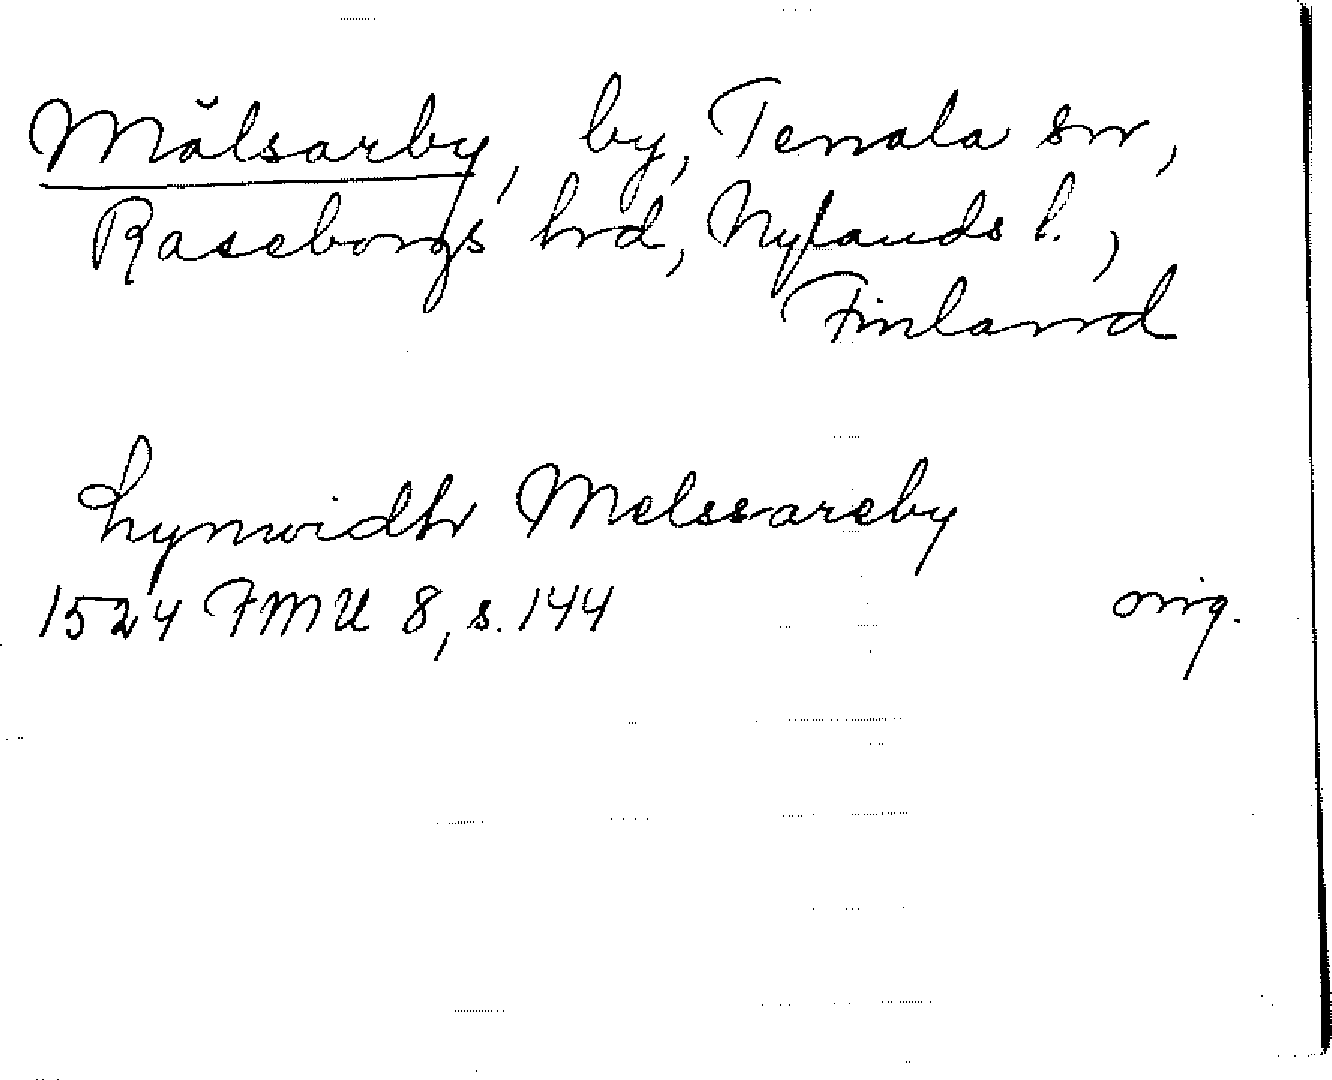 Målsarby, by, Tenala sn,
Raseborgs hrd, Nylands l.,
Finland
Lynwidh Melssareby
1524 FMU 8, s. 144
orig.